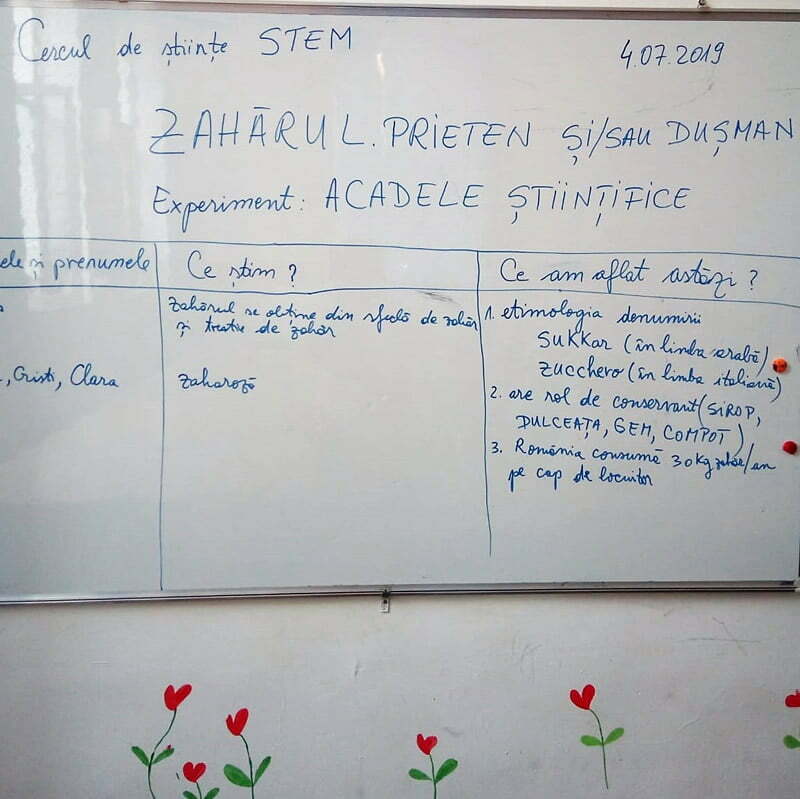 Cercul de științe STEM
4.07.2019
ZAHĂRUL. PRIETEN ȘI/SAU DUȘMAN
Experiment: ACADELE ȘTIINȚIFICE
ele și prenumele
Cristi, Clara
Ce știm?
Zahărul se obține din sfeclă de zahăr
și trestie de zahăr
Zaharoză
Ce am aflat astăzi?
1. etimologia denumirii
SUKKAR (în limba arabă)
ZUCCHERO (în limba italiană)
2. are rol de conservant (SIROP,
DULCEAȚA, GEM, COMPOT)
3. România consumă 30kg zahăr/an
pe cap de locuitor